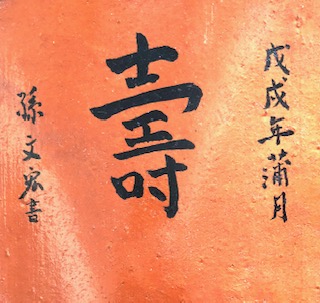 戊戌年蒲月
壽
孫文宏書